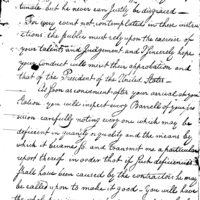 tunate but he never can justly be disgraced —
For any event not contemplated in these instru
ctions the public must rely upon the exercise of
your talents and Judgement and I sincerely hope
your conduct will meet their approbation and
that of the President of the United States —
As soon as convenient after your arrival at your
Station you will inspect every Barrell of
carefully noting every one which may be
deficient in quantity or quality and the means by
which it became so and transmit me a particular
report thereof in order that if such deficiencies
shall have been caused by the contractors he may
be called upon to make it good — You will have